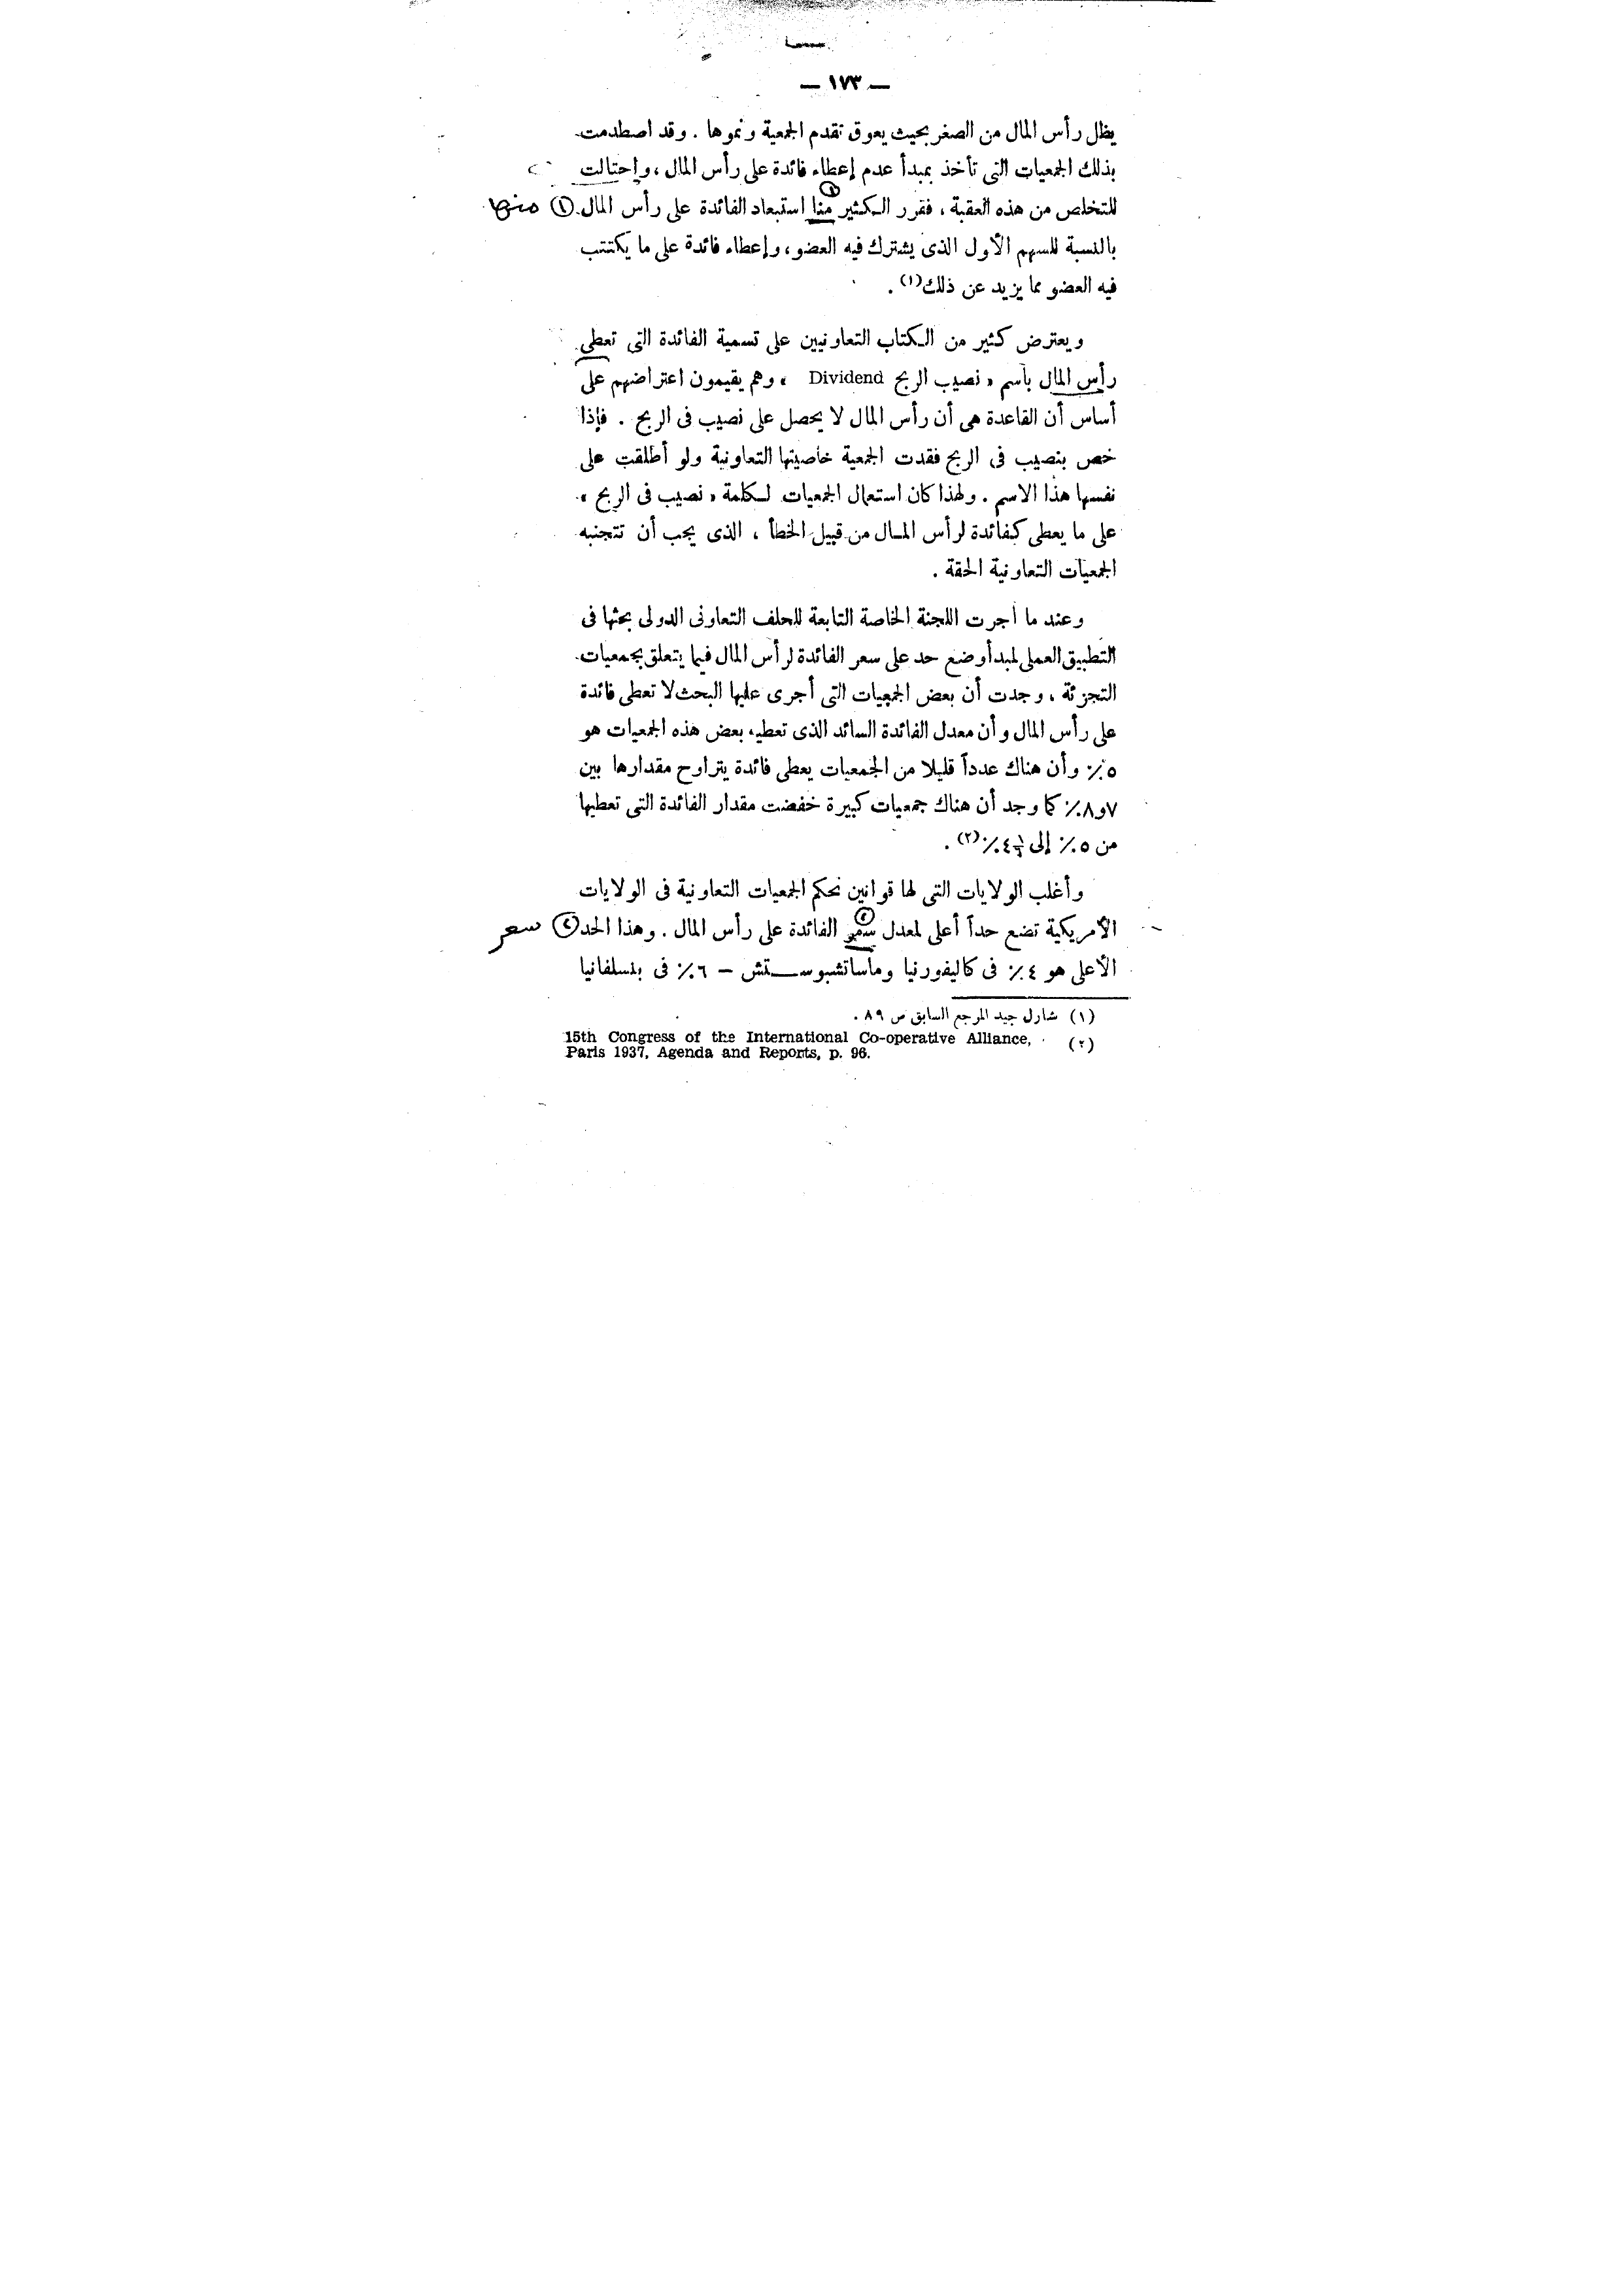 — ١٧٣ —
يظل رأس المال من الصغر بحيث يعوق تقدم الجمعية ونموها . وقد اصطدمت
بذلك الجمعيات التى تأخذ بمبدأ عدم إعطاء فائدة على رأس المال ، وإحتالت
للتخلص من هذه العقبة ، فقرر الكثير منا استبعاد الفائدة على رأس المال (١) منها
بالنسبة للسهم الأول الذى يشترك فيه العضو ، وإعطاء فائدة على ما يكتتب
فيه العضو مما يزيد عن ذلك(١) .
ويعترض كثير من الكتاب التعاونيين على تسمية الفائدة التى تعطى
رأس المال بأسم « نصيب الربح Dividend » وهم يقيمون اعتراضهم على
أساس أن القاعدة هى أن رأس المال لا يحصل على نصيب فى الربح . فإذا
خص بنصيب فى الربح فقدت الجمعية خاصيتها التعاونية ولو أطلقت على
نفسها هذا الاسم . ولهذا كان استعمال الجمعيات لكلمة « نصيب فى الربح »
على ما يعطى كفائدة لرأس المال من قبيل الخطأ ، الذى يجب أن تتجنبه
الجمعيات التعاونية الحقة .
وعند ما أجرت اللجنة الخاصة التابعة للحلف التعاونى الدولى بحثها فى
التطبيق العملى لمبدأ وضع حد على سعر الفائدة لرأس المال فيما يتعلق بجمعيات
التجزئة ، وجدت أن بعض الجمعيات التى أجرى عليها البحث لا تعطى فائدة
على رأس المال وأن معدل الفائدة السائد الذى تعطيه بعض هذه الجمعيات هو
٥٪ وأن هناك عدداً قليلا من الجمعيات يعطى فائدة يتراوح مقدارها بين
٧و٨٪ كما وجد أن هناك جمعيات كبيرة خفضت مقدار الفائدة التى تعطيها
من ٥٪ إلى ٤½٪(٢) .
وأغلب الولايات التى لها قوانين تحكم الجمعيات التعاونية فى الولايات
الأمريكية تضع حداً أعلى لمعدل الفائدة على رأس المال . وهذا الحد (٢) سعر
الأعلى هو ٤٪ فى كاليفورنيا وماساتشبوستش — ٦٪ فى بنسلفانيا
(١) شارل جيد المرجع السابق ص ٨٩ .
(٢) 15th Congress of the International Co-operative Alliance,
Paris 1937, Agenda and Reports, p. 96.